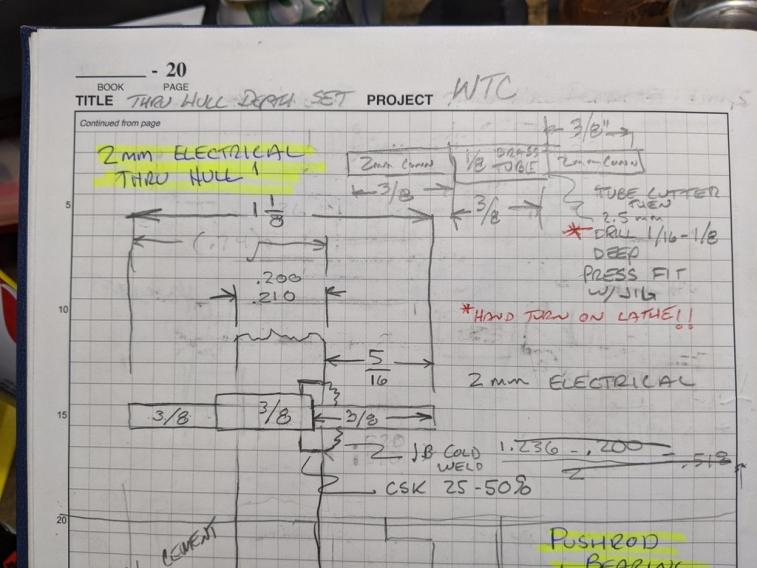 - 20
BOOK PAGE
TITLE THRU HULL DEPTH SET PROJECT WTC
Continued from page
3/8"
2mm ELECTRICAL
THRU HULL
2mm CONN 1/8 BRASS TUBE 2mm CONN
3/8
3/8
TUBE CUTTER
THEN
2.5 mm
5
1 1/8
* DRILL 1/16 - 1/8
DEEP
PRESS FIT
W/ JIG
.200
.210
10
*HAND TURN ON LATHE!!
5/16
2mm ELECTRICAL
15
3/8 3/8 3/8
JB COLD
WELD
1.236 - .200
2
.518
CSK 25-50%
20
CEMENT
PUSHROD
BEARING